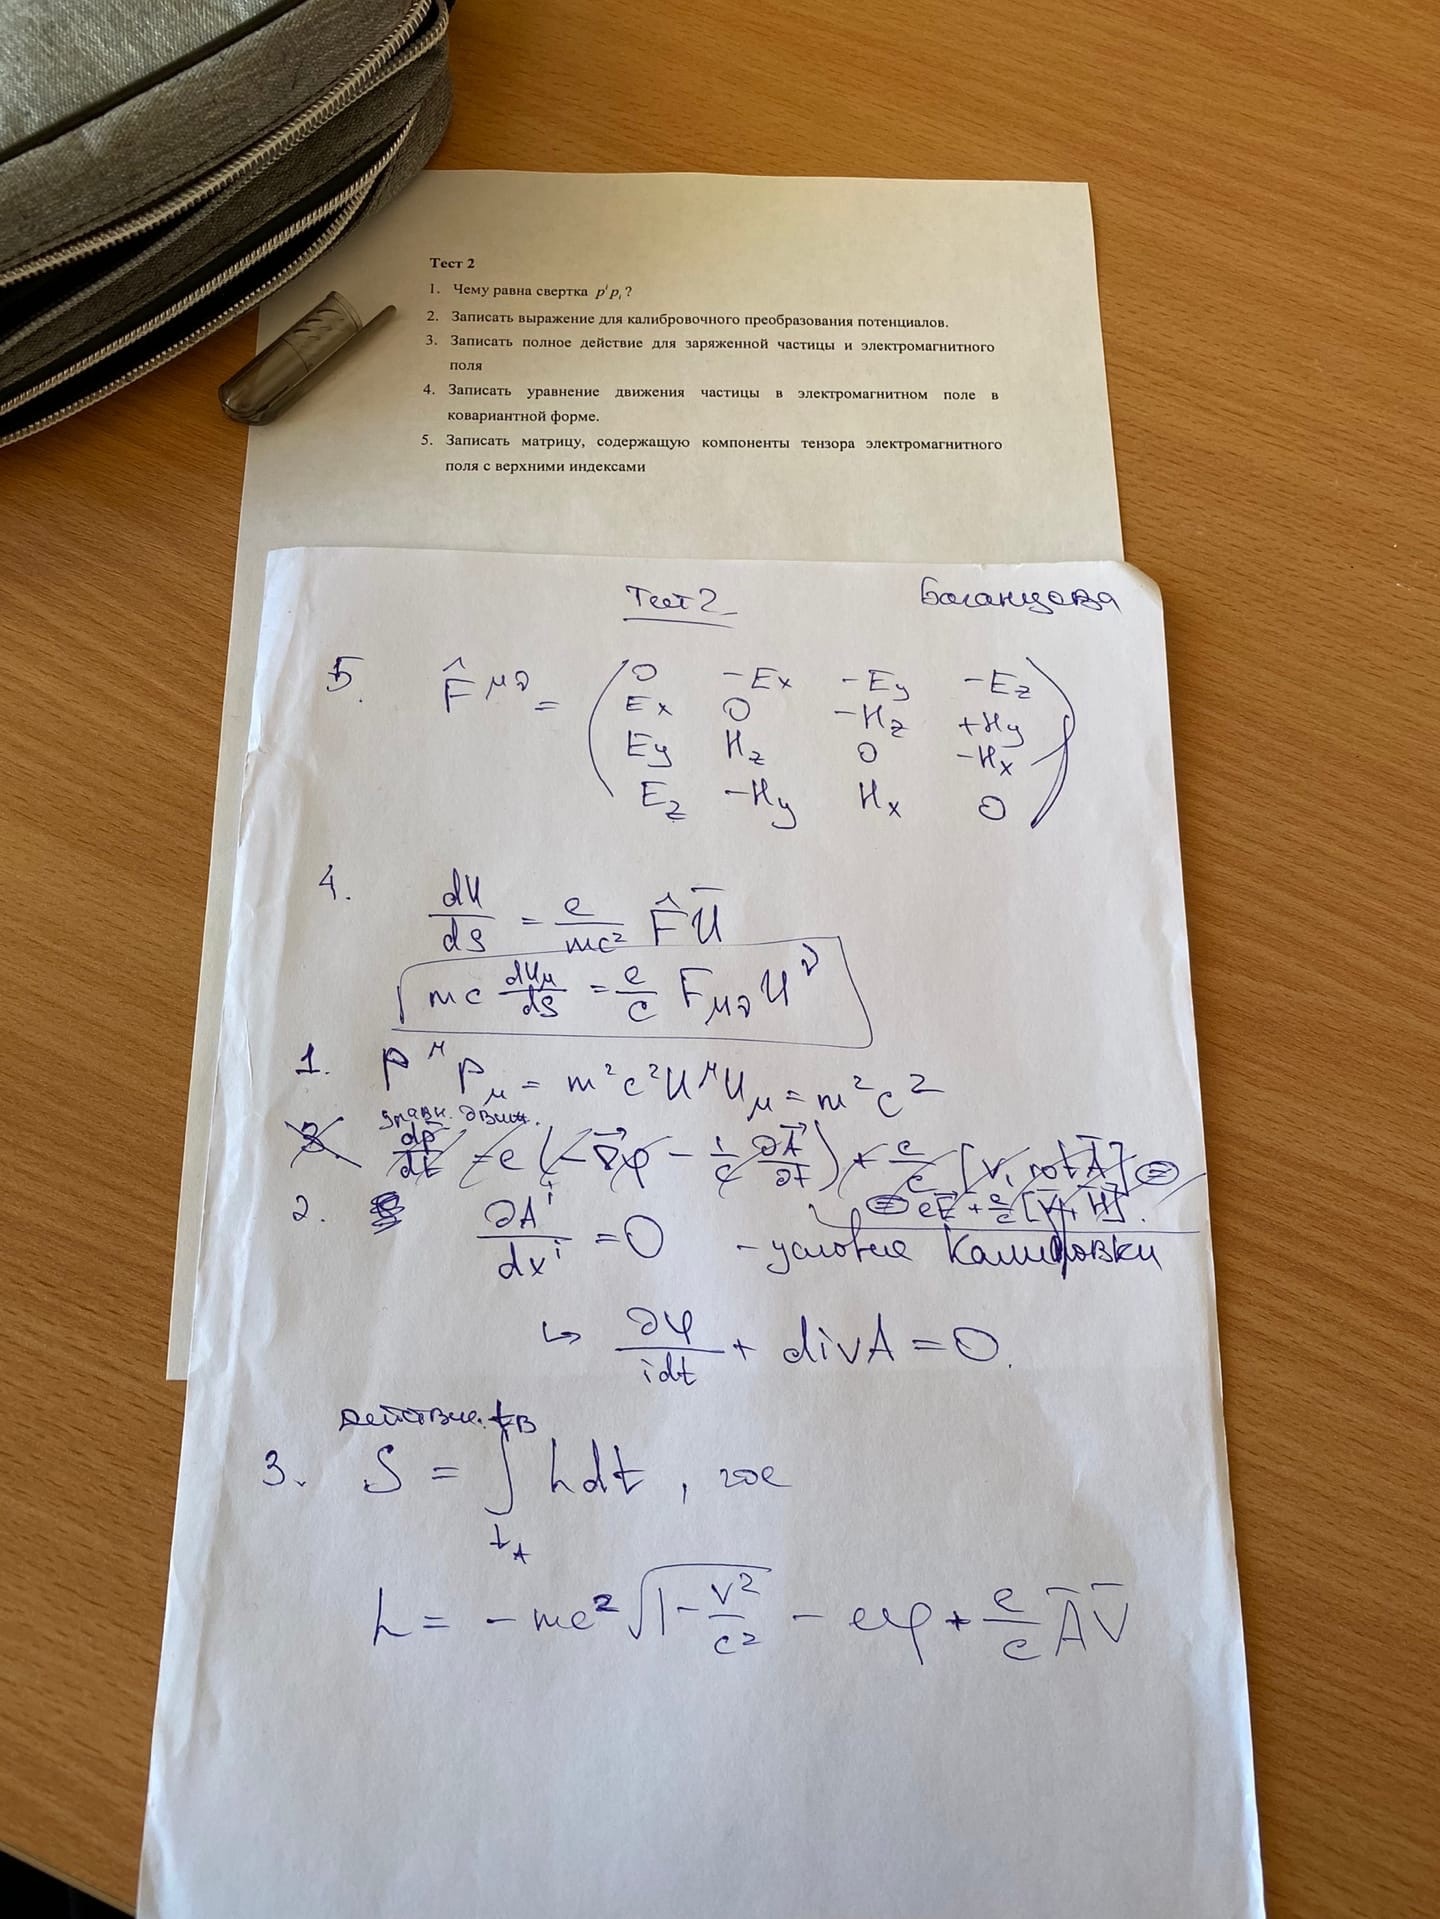 Тест 2
1. Чему равна свертка pⁱpᵢ?
2. Записать выражение для калибровочного преобразования потенциалов.
3. Записать полное действие для заряженной частицы и электромагнитного
поля
4. Записать уравнение движения частицы в электромагнитном поле в
ковариантной форме.
5. Записать матрицу, содержащую компоненты тензора электромагнитного
поля с верхними индексами
Тест 2 Баганцова
5. F̂^{μν} = ( 0 -Ex -Ey -Ez
Ex 0 -Hz +Hy
Ey Hz 0 -Hx
Ez -Hy Hx 0 )
4. dU/dS = e/mc² F̂ Ū
mc dU_μ/dS = e/c F_{μν} U^ν
1. P^μ P_μ = m²c² U^μ U_μ = m²c²
уравн. движ.
3. dp/dt = e(-∇⃗φ - 1/c ∂A⃗/∂t) + e/c [v, rot A⃗] =
= eE⃗ + e/c [V, H⃗].
2. ∂Aⁱ/dxⁱ = 0 - условие Калибровки
↳ ∂φ/idt + divA = 0.
действие. t_B
3. S = ∫ Ldt, где
t_A
L = -mc² √(1 - v²/c²) - eφ + e/c A̅ V̅